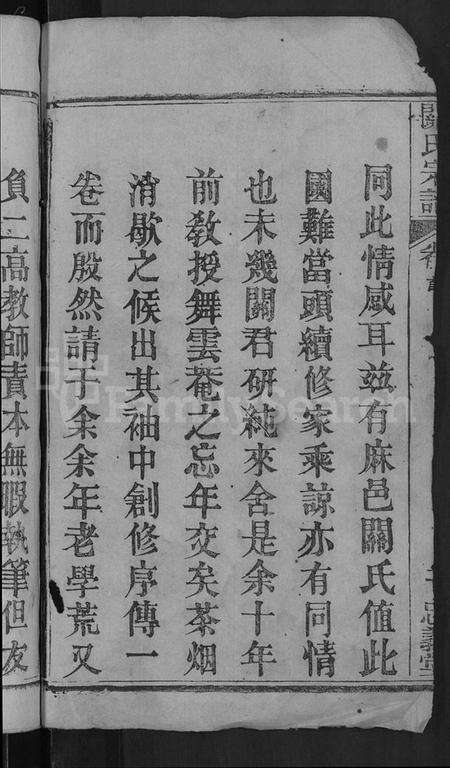 關氏宗譜
卷首
忠義堂
同此情感耳茲有麻邑關氏值此
國難當頭續修家乘諒亦有同情
也未幾關君研純來舍是余十年
前教授舞雲菴之忘年交矣茶烟
消歇之候出其袖中創修序傳一
卷而殷然請于余余年老學荒又
負二高教師責本無暇執筆但友
FamilySearch